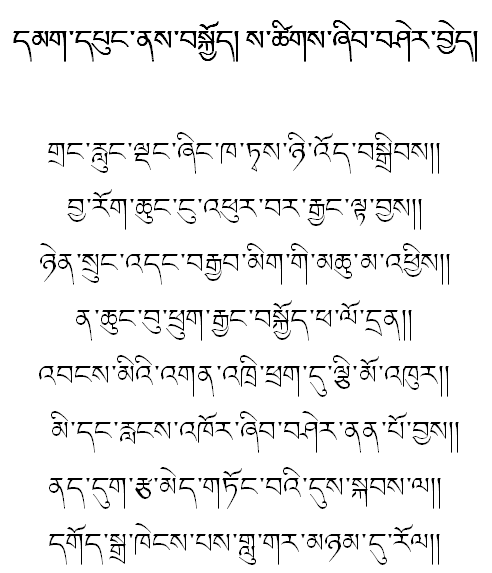 དམག་དཔུང་ནས་བསྐྱོད། ས་ཚིགས་ཞིབ་བཤེར་བྱེད།
གྲང་རླུང་ལྡང་ཞིང་ཁ་ཏྭས་ཉི་འོད་བསྒྲིབས།།
བྱ་རོག་ཆུང་ངུ་འཕུར་བར་རྒྱང་ལྟ་བྱས།།
ཉེན་སྲུང་འདང་བརྒྱབ་མིག་གི་མཆུ་མ་འཕྱིས།།
ན་ཆུང་བུ་ཕྲུག་རྒྱང་བསྐྱོད་ཕ་ལོ་དྲན།།
འབངས་མིའི་འགན་འཁྲི་ཕྲག་ཏུ་ལྕི་མོ་འཁུར།།
མི་དང་རླངས་འཁོར་ཞིབ་བཤེར་ནན་པོ་བྱས།།
ནད་དུག་རྩ་མེད་གཏོང་བའི་དུས་སྐབས་ལ།།
དགོད་སྒྲ་ཁེངས་པས་གླུ་གར་མཉམ་དུ་རོལ།།